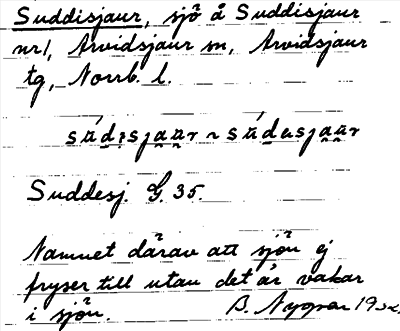 Suddisjaur, sjö å Suddisjaur
nr 1, Arvidsjaur sn, Arvidsjaur
tg, Norrb. l.
Suddesj. G. 35.
Namnet därav att sjön ej
fryser till utan det är vakar
i sjön. B. Nygren